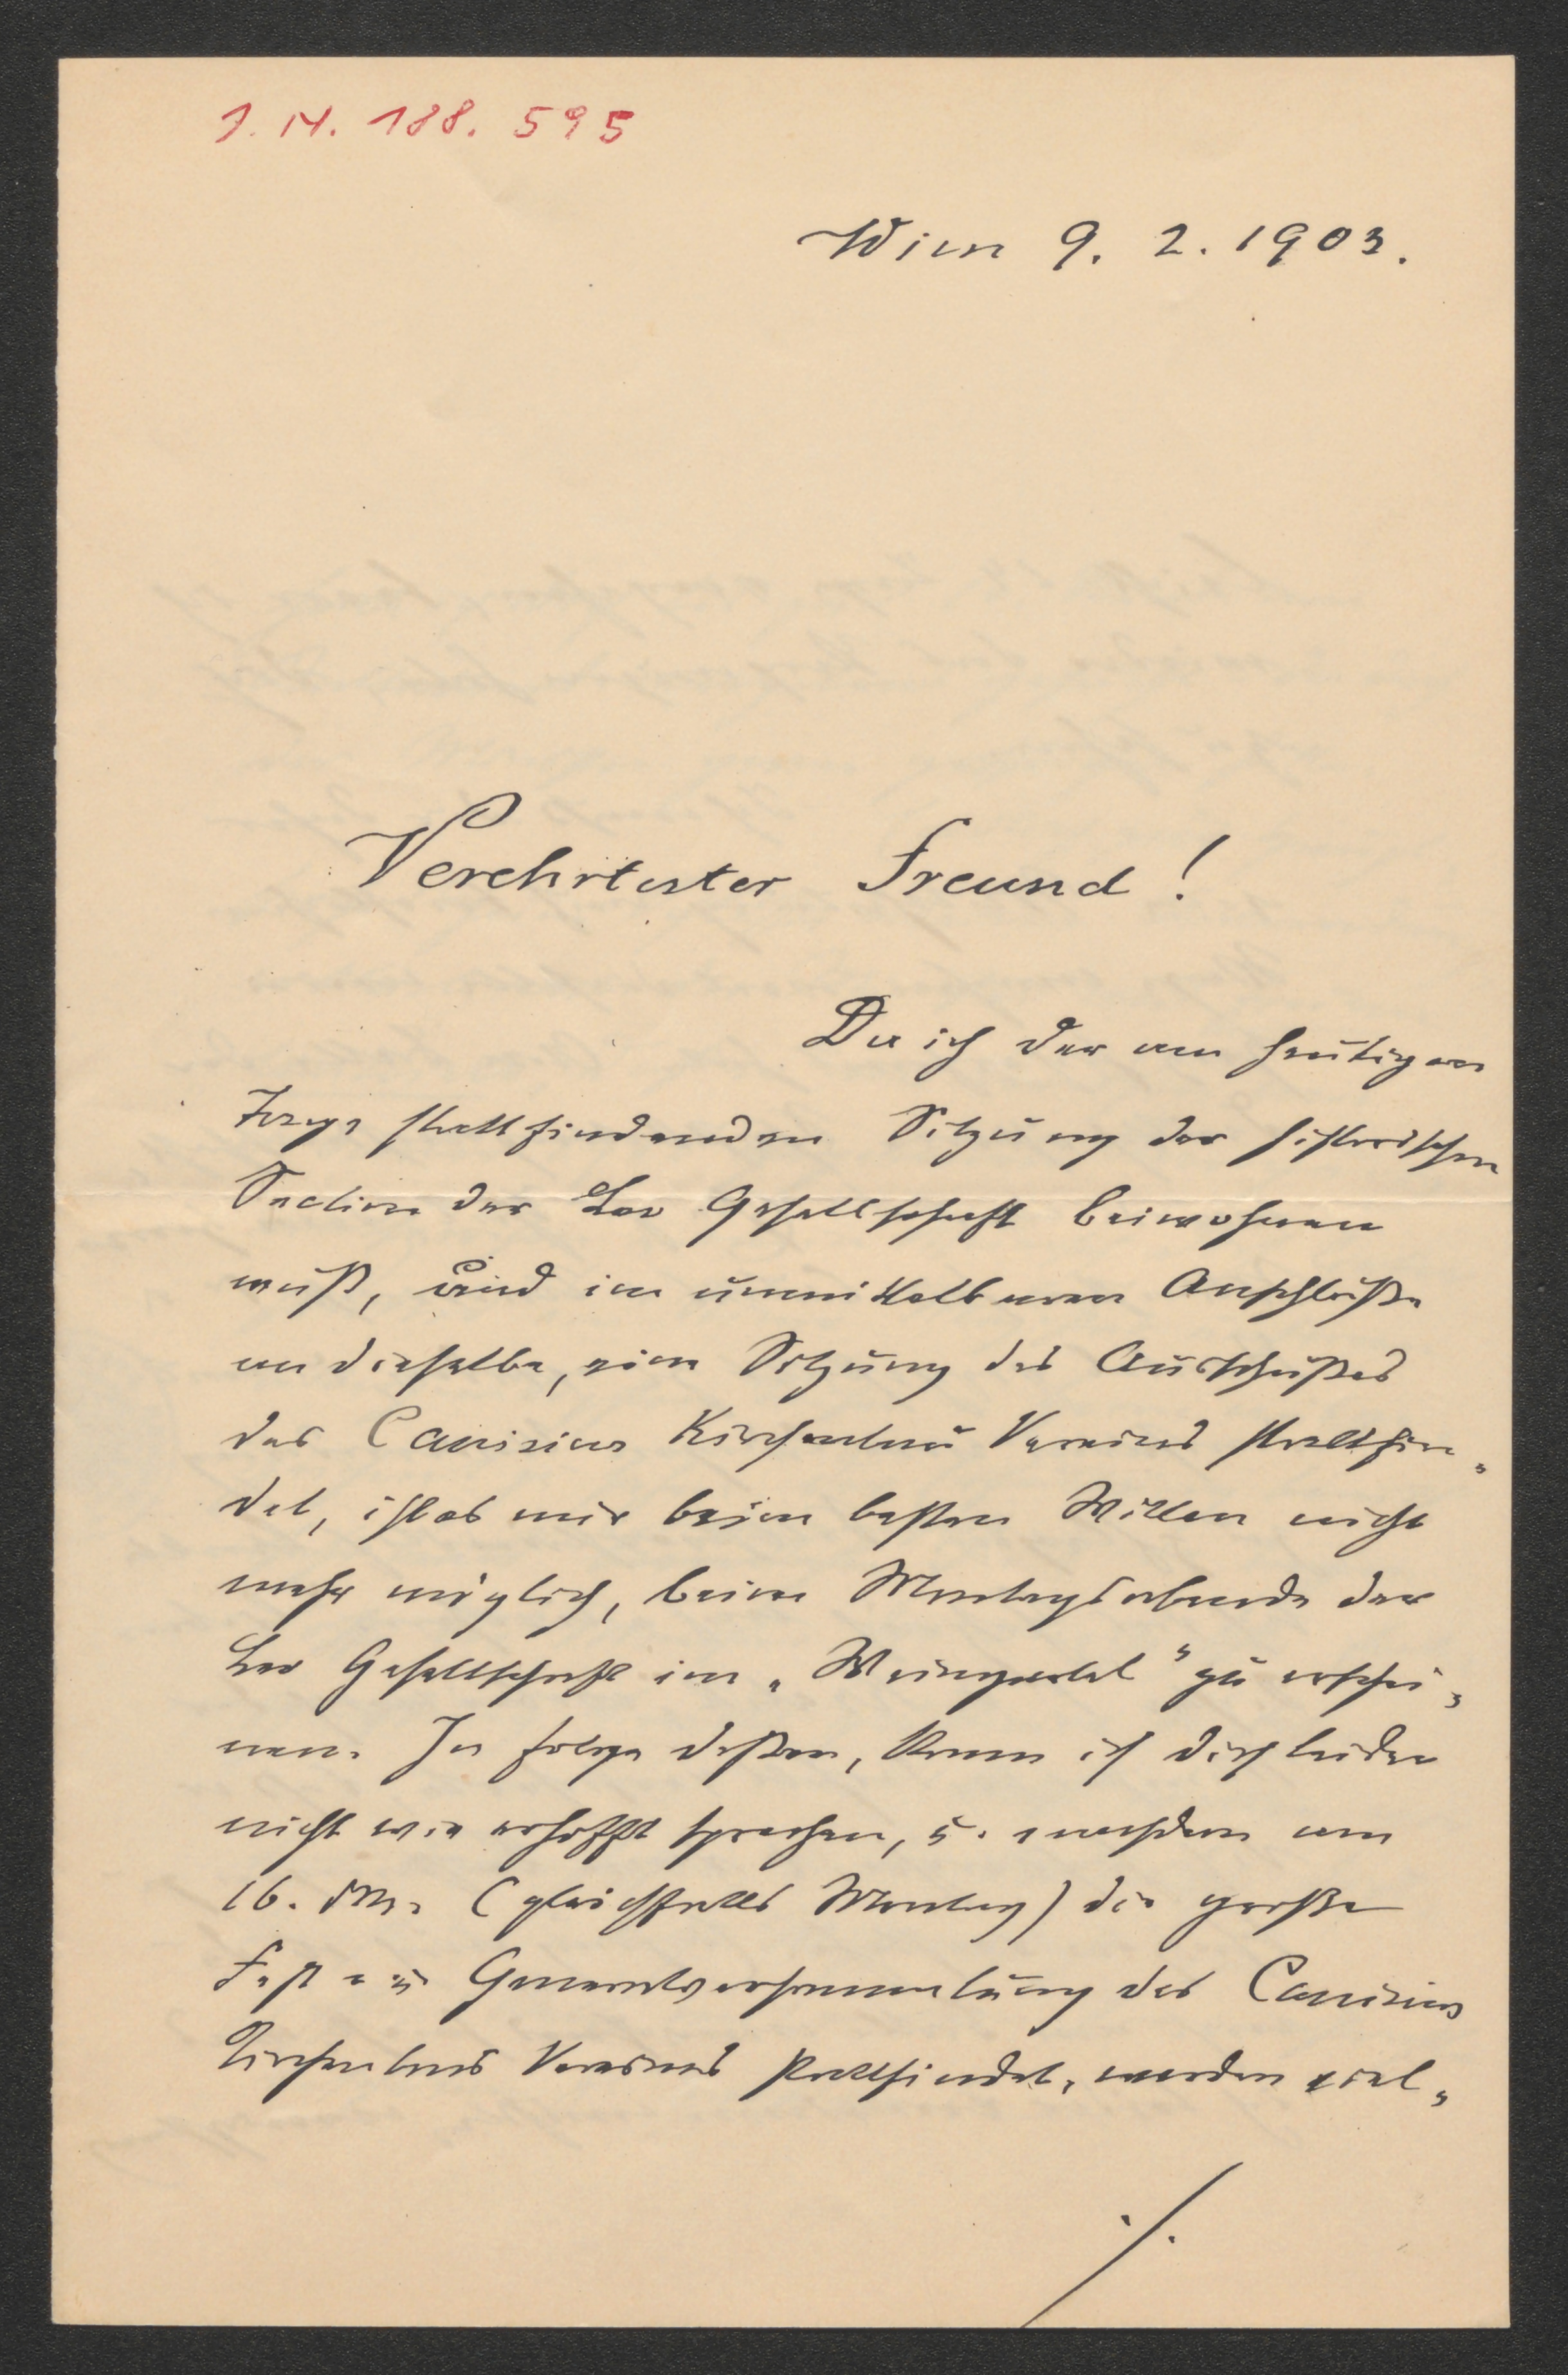 J. N. 188.595
Wien 9. 2. 1903.
Verehrtester Freund!
Da ich der am heutigen
Tage stattfindenden Sitzung der historischen
Section der Leo Gesellschaft beiwohnen
muß, und im unmittelbaren Anschluße
an dieselbe, eine Sitzung des Ausschußes
des Canisius Kirchenbau Vereines stattfin„
det, ist es mir beim besten Willen nicht
mehr möglich, beim Montagsabende der
Leo Gesellschaft im „Weingartel" zu erschei„
nen. In folge deßen, kann ich dich leider
nicht wie erhofft sprechen, u. nachdem am
16. d M. (gleichfalls Montag) die große
Fest = u Generalversammlung des Canisius
Kirchenbau Vereines stattfindet, werden viel„
./.